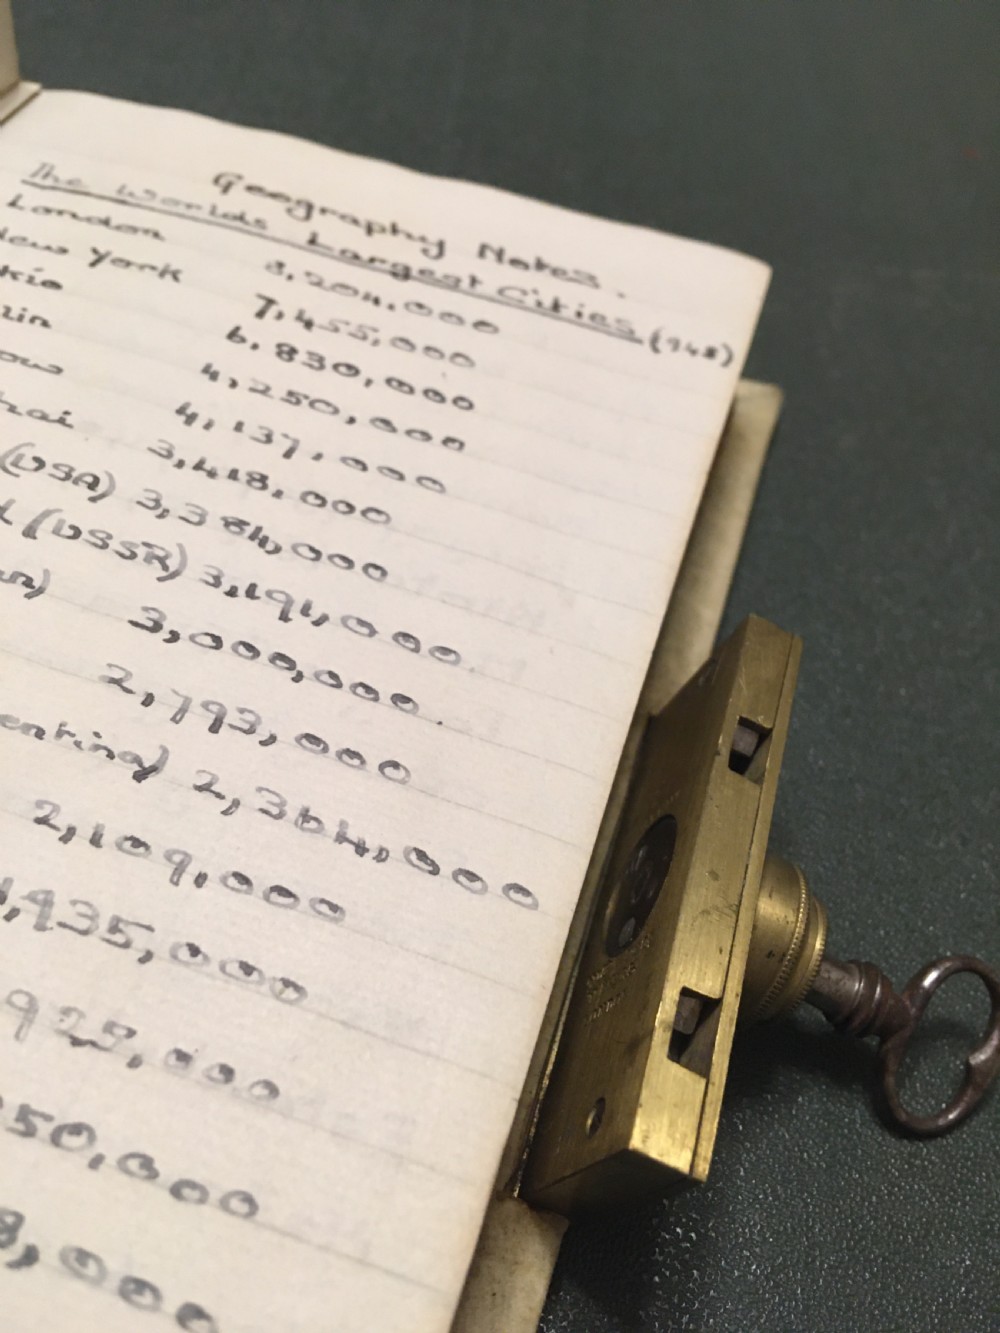 Geography Notes.
The Worlds Largest Cities (948)
London 8,204,000
New York 7,455,000
kio 6.830,000
lin 4,250,000
ow 4,137,000
hai 3,418,000
(USA) 3,384,000
d (USSR) 3,191,000.
an) 3,000,000.
2,793,000
entina) 2,364,000
2,109,000
1,935,000
925,000
50,000
8,000